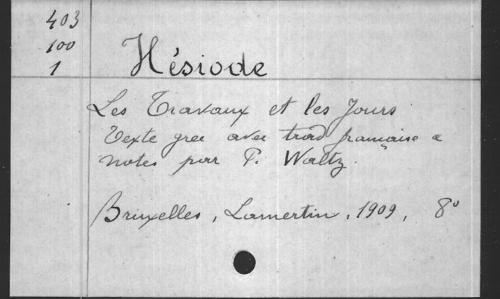 403
100
1
Hésiode
Les Travaux et les Jours
Texte grec avec trad française e
notes par P. Waltz.
Bruxelles, Lamertin, 1909, 8°